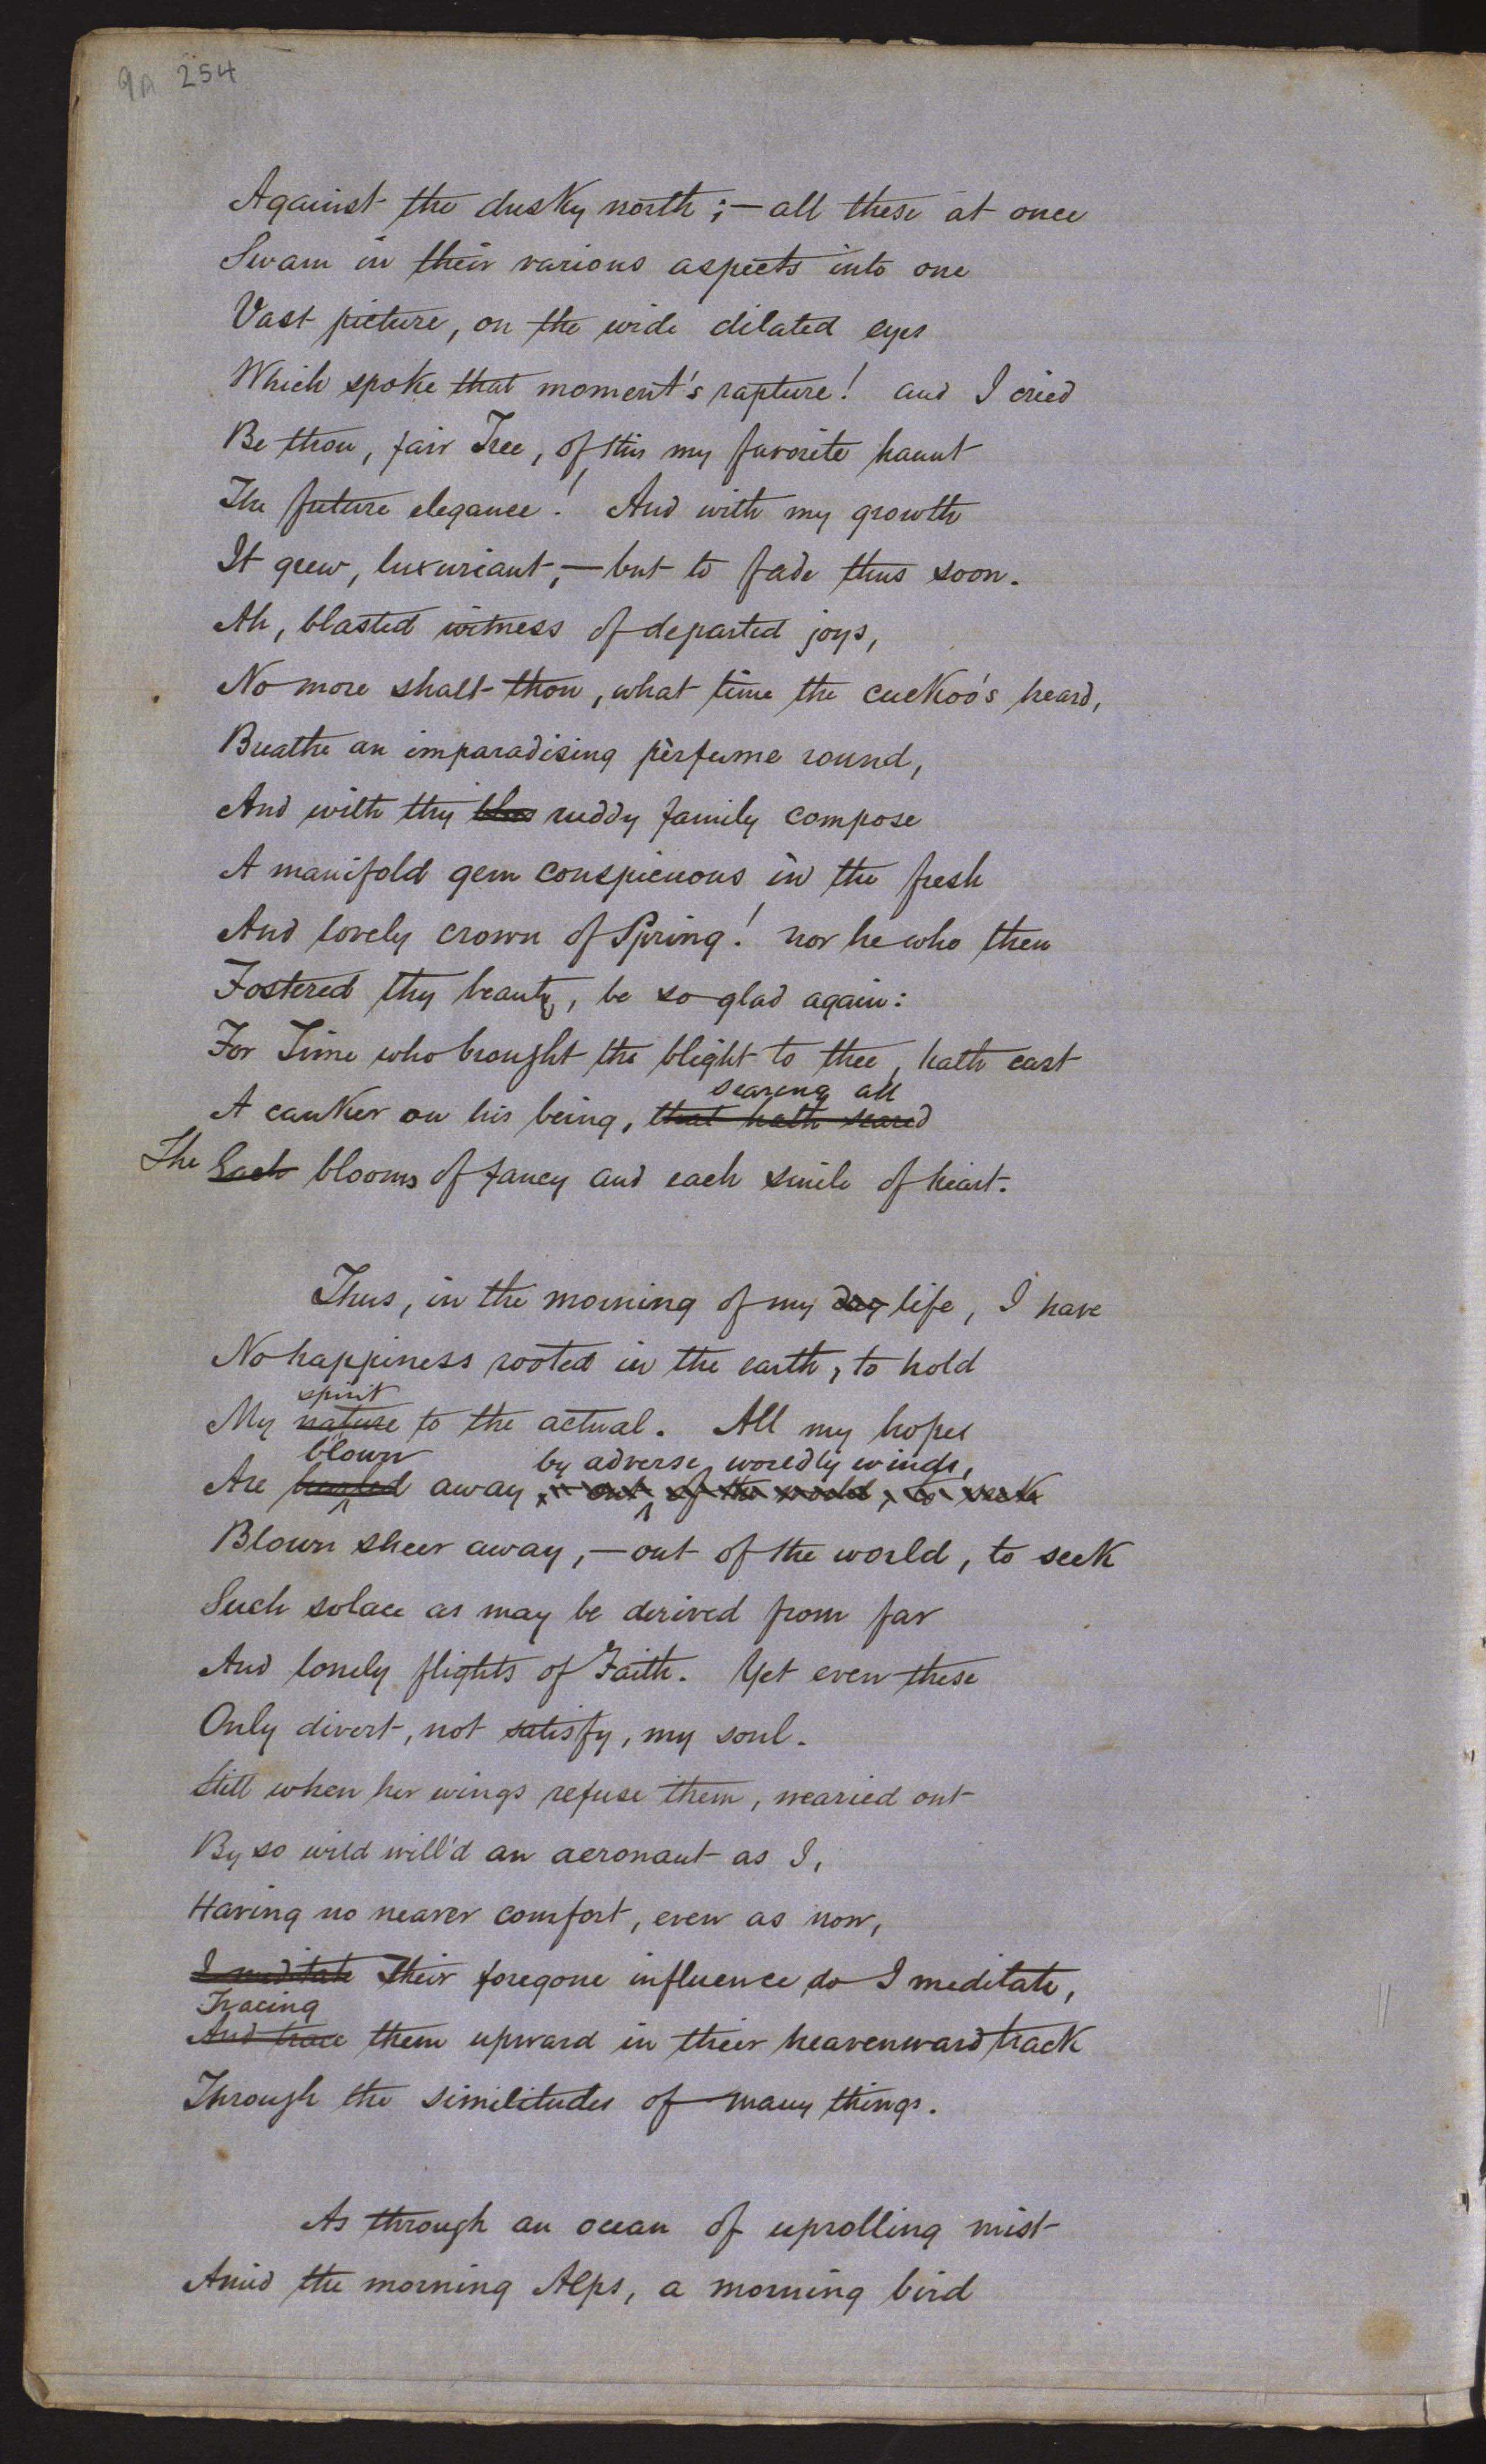 9A 254
Against the dusky north;—all these at once
Swam in their various aspects into one
Vast picture, on the wide dilated eyes
Which spoke that moment's rapture! and I cried
Be thou, fair Tree, of this my favorite haunt
The future elegance! And with my growth
It grew, luxuriant;—but to fade thus soon.
Ah, blasted witness of departed joys,
No more shalt thou, what time the cuckoo's heard,
Breathe an imparadising perfume round,
And with thy ruddy family compose
A manifold gem conspicuous in the fresh
And lovely crown of Spring! nor he who then
Fostered thy beauty, be so glad again:
For Time who brought the blight to thee, hath cast
searing all
A canker on his being, that hath seared
The Each blooms of fancy and each smile of heart.
Thus, in the morning of my day life, I have
No happiness rooted in the earth, to hold
spirit
My nature to the actual. All my hopes
blown by adverse, worldly winds,
Are away, out of the world, to seek
Blown sheer away,—out of the world, to seek
Such solace as may be derived from far
And lonely flights of Faith. Yet even these
Only divert, not satisfy, my soul.
Still when her wings refuse them, wearied out
By so wild will'd an aeronaut as I,
Having no nearer comfort, even as now,
I meditate Their foregone influence do I meditate,
Tracing
And trace them upward in their heavenward track
Through the similitudes of many things.
As through an ocean of uprolling mist
Amid the morning Alps, a morning bird